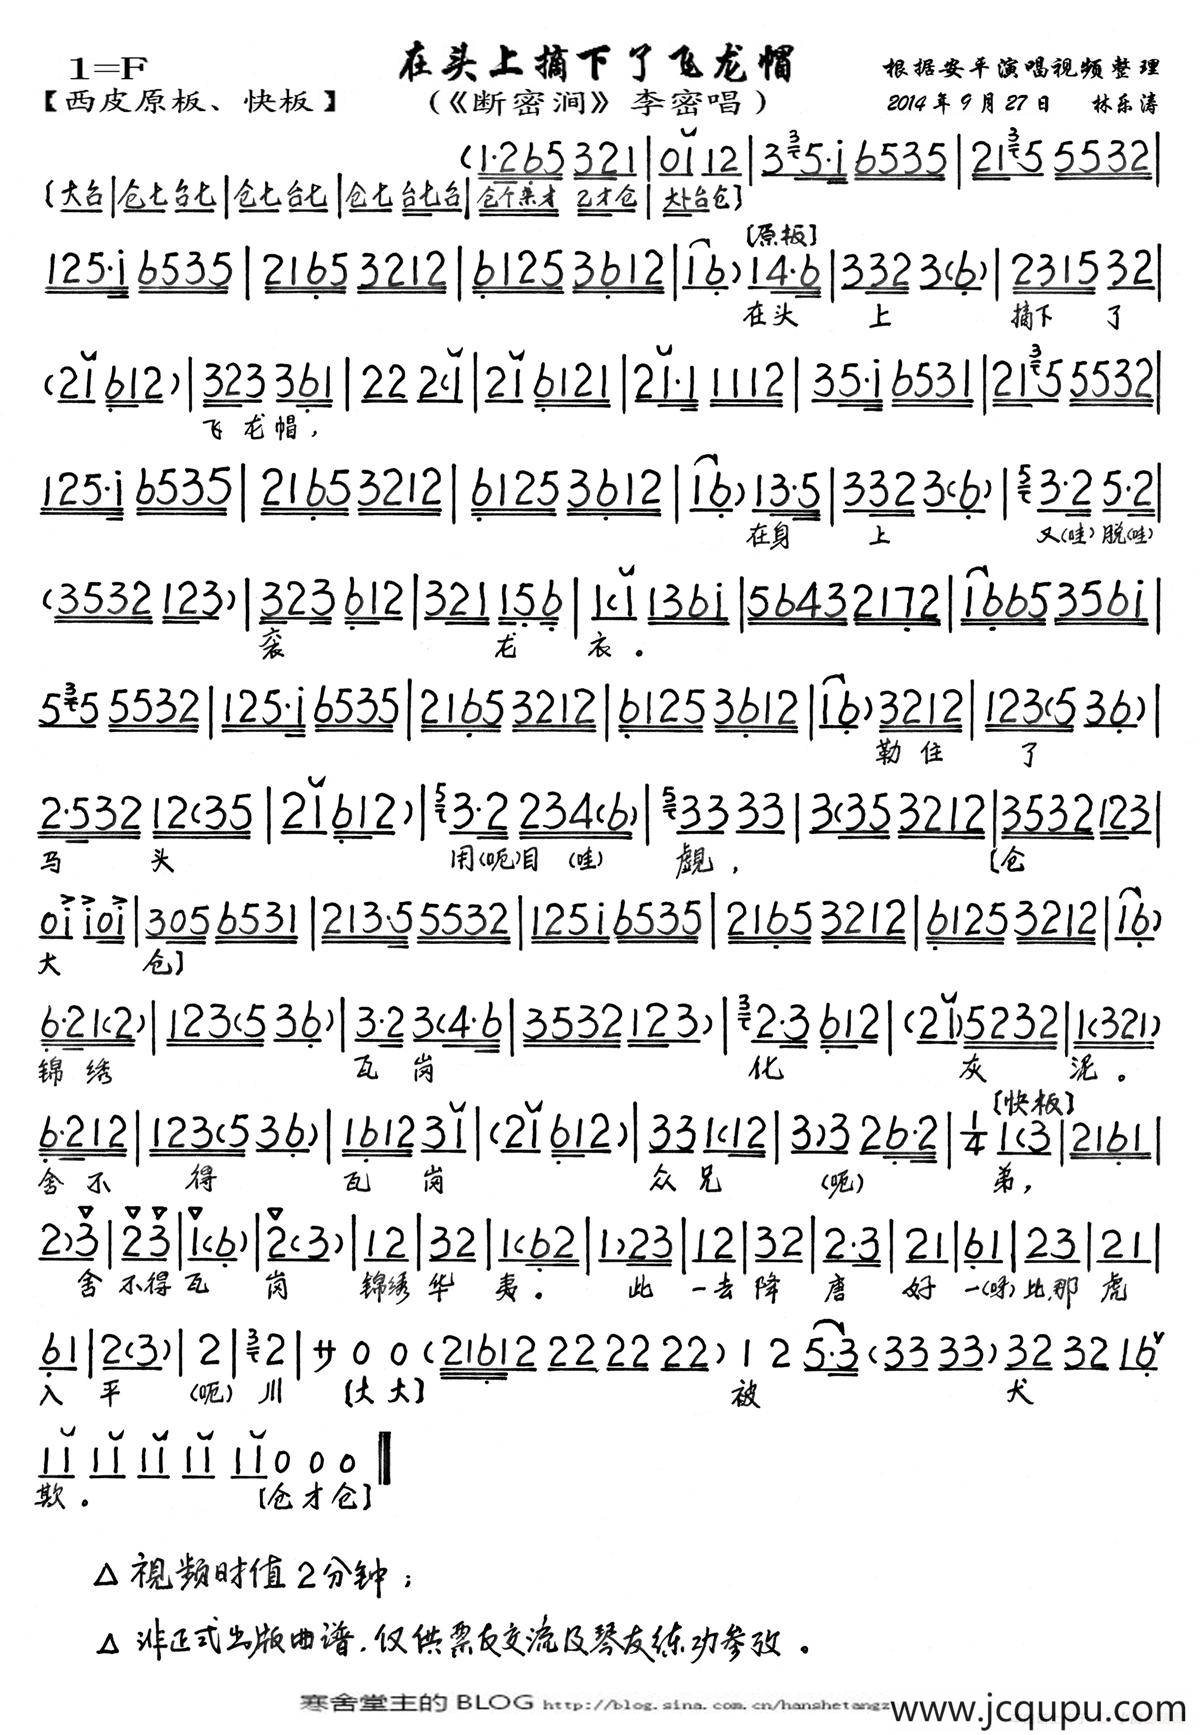 1=F
在头上摘下了飞龙帽
根据安平演唱视频整理
【西皮原板、快板】
（《断密涧》李密唱）
2014年9月27日 林乐涛
(1·265 321 | 01 12 | 3 5·i 6535 | 21 5 5532 |
[大台 | 仓七台七 | 仓七台七 | 仓七台七台 | 仓个来才 乙才仓 | 大卜台仓]
[原板]
125·i 6535 | 2165 3212 | 6125 3612 | 16) 14·6 | 332 3(6) | 2315 32 |
在头 上 摘下 了
(2i 612) | 323 361 | 22 2(i | 2i 6121 | 2i·1 1112 | 35·i 6531 | 21 5 5532 |
飞龙帽，
125·i 6535 | 2165 3212 | 6125 3612 | 16) 13·5 | 332 3(6) | 3·2 5·2 |
在身 上 又(哇)脱(哇)
(3532 123) | 323 612 | 321 156 | 1(i 136i | 5643 2172 | 1665 356i |
衮 龙 衣。
5 5 5532 | 125·i 6535 | 2165 3212 | 6125 3612 | 16) 3212 | 123(5 36) |
勒住 了
2·532 12(35 | 2i 612) | 3·2 234(6) | 33 33 | 3(35 3212 | 3532 123 |
马 头 用(呃)目 (哇) 觑， [仓
0i i0i | 305 6531 | 213·5 5532 | 125i 6535 | 2165 3212 | 6125 3212 | 16)
大 仓]
6·21(2) | 123(5 36) | 3·2 3(4·6 | 3532 123) | 2·3 612 | (2i) 5232 | 1(321) |
锦绣 瓦岗 化 灰 泥。
[快板]
6·212 | 123(5 36) | 1612 3i | (2i 612) | 33 1(12 | 3)3 26·2 | 1/4 1(3 | 2161 |
舍不 得 瓦 岗 众兄 (呃) 弟，
2)3 | 23 | 1(6) | 2(3) | 12 | 32 | 1(62 | 1)23 | 12 | 32 | 2·3 | 21 | 61 | 23 | 21 |
舍不得瓦 岗 锦绣华 夷。 此 一去降 唐 好 一(呀)比那虎
61 | 2(3) | 2 | 2 | サ 0 0 (21612 22 22 22) 1 2 5·3 (33 33) 32 32 16
入 平 (呃) 川 [大大] 被 犬
1i 1i 1i 1i 1i 0 0 0
欺。 [仓才仓]
△ 视频时值2分钟；
△ 非正式出版曲谱，仅供票友交流及琴友练功参考。
寒舍堂主的BLOG http://blog.sina.com.cn/hanshetangz
www.jcqupu.com